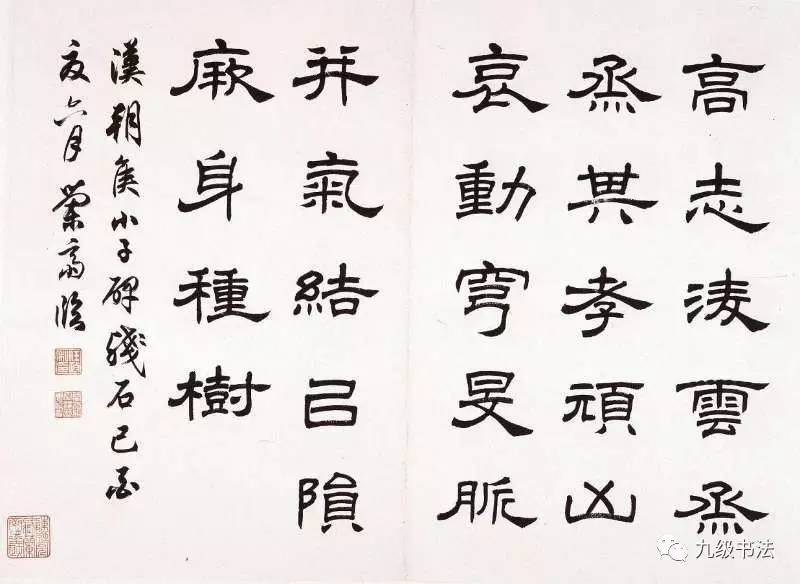 高志淩雲烝
烝其孝頑凶
哀動穹旻脈
并氣結㠯隕
厥身種樹
漢朝侯小子碑殘石
六月蘭斎臨
九级书法